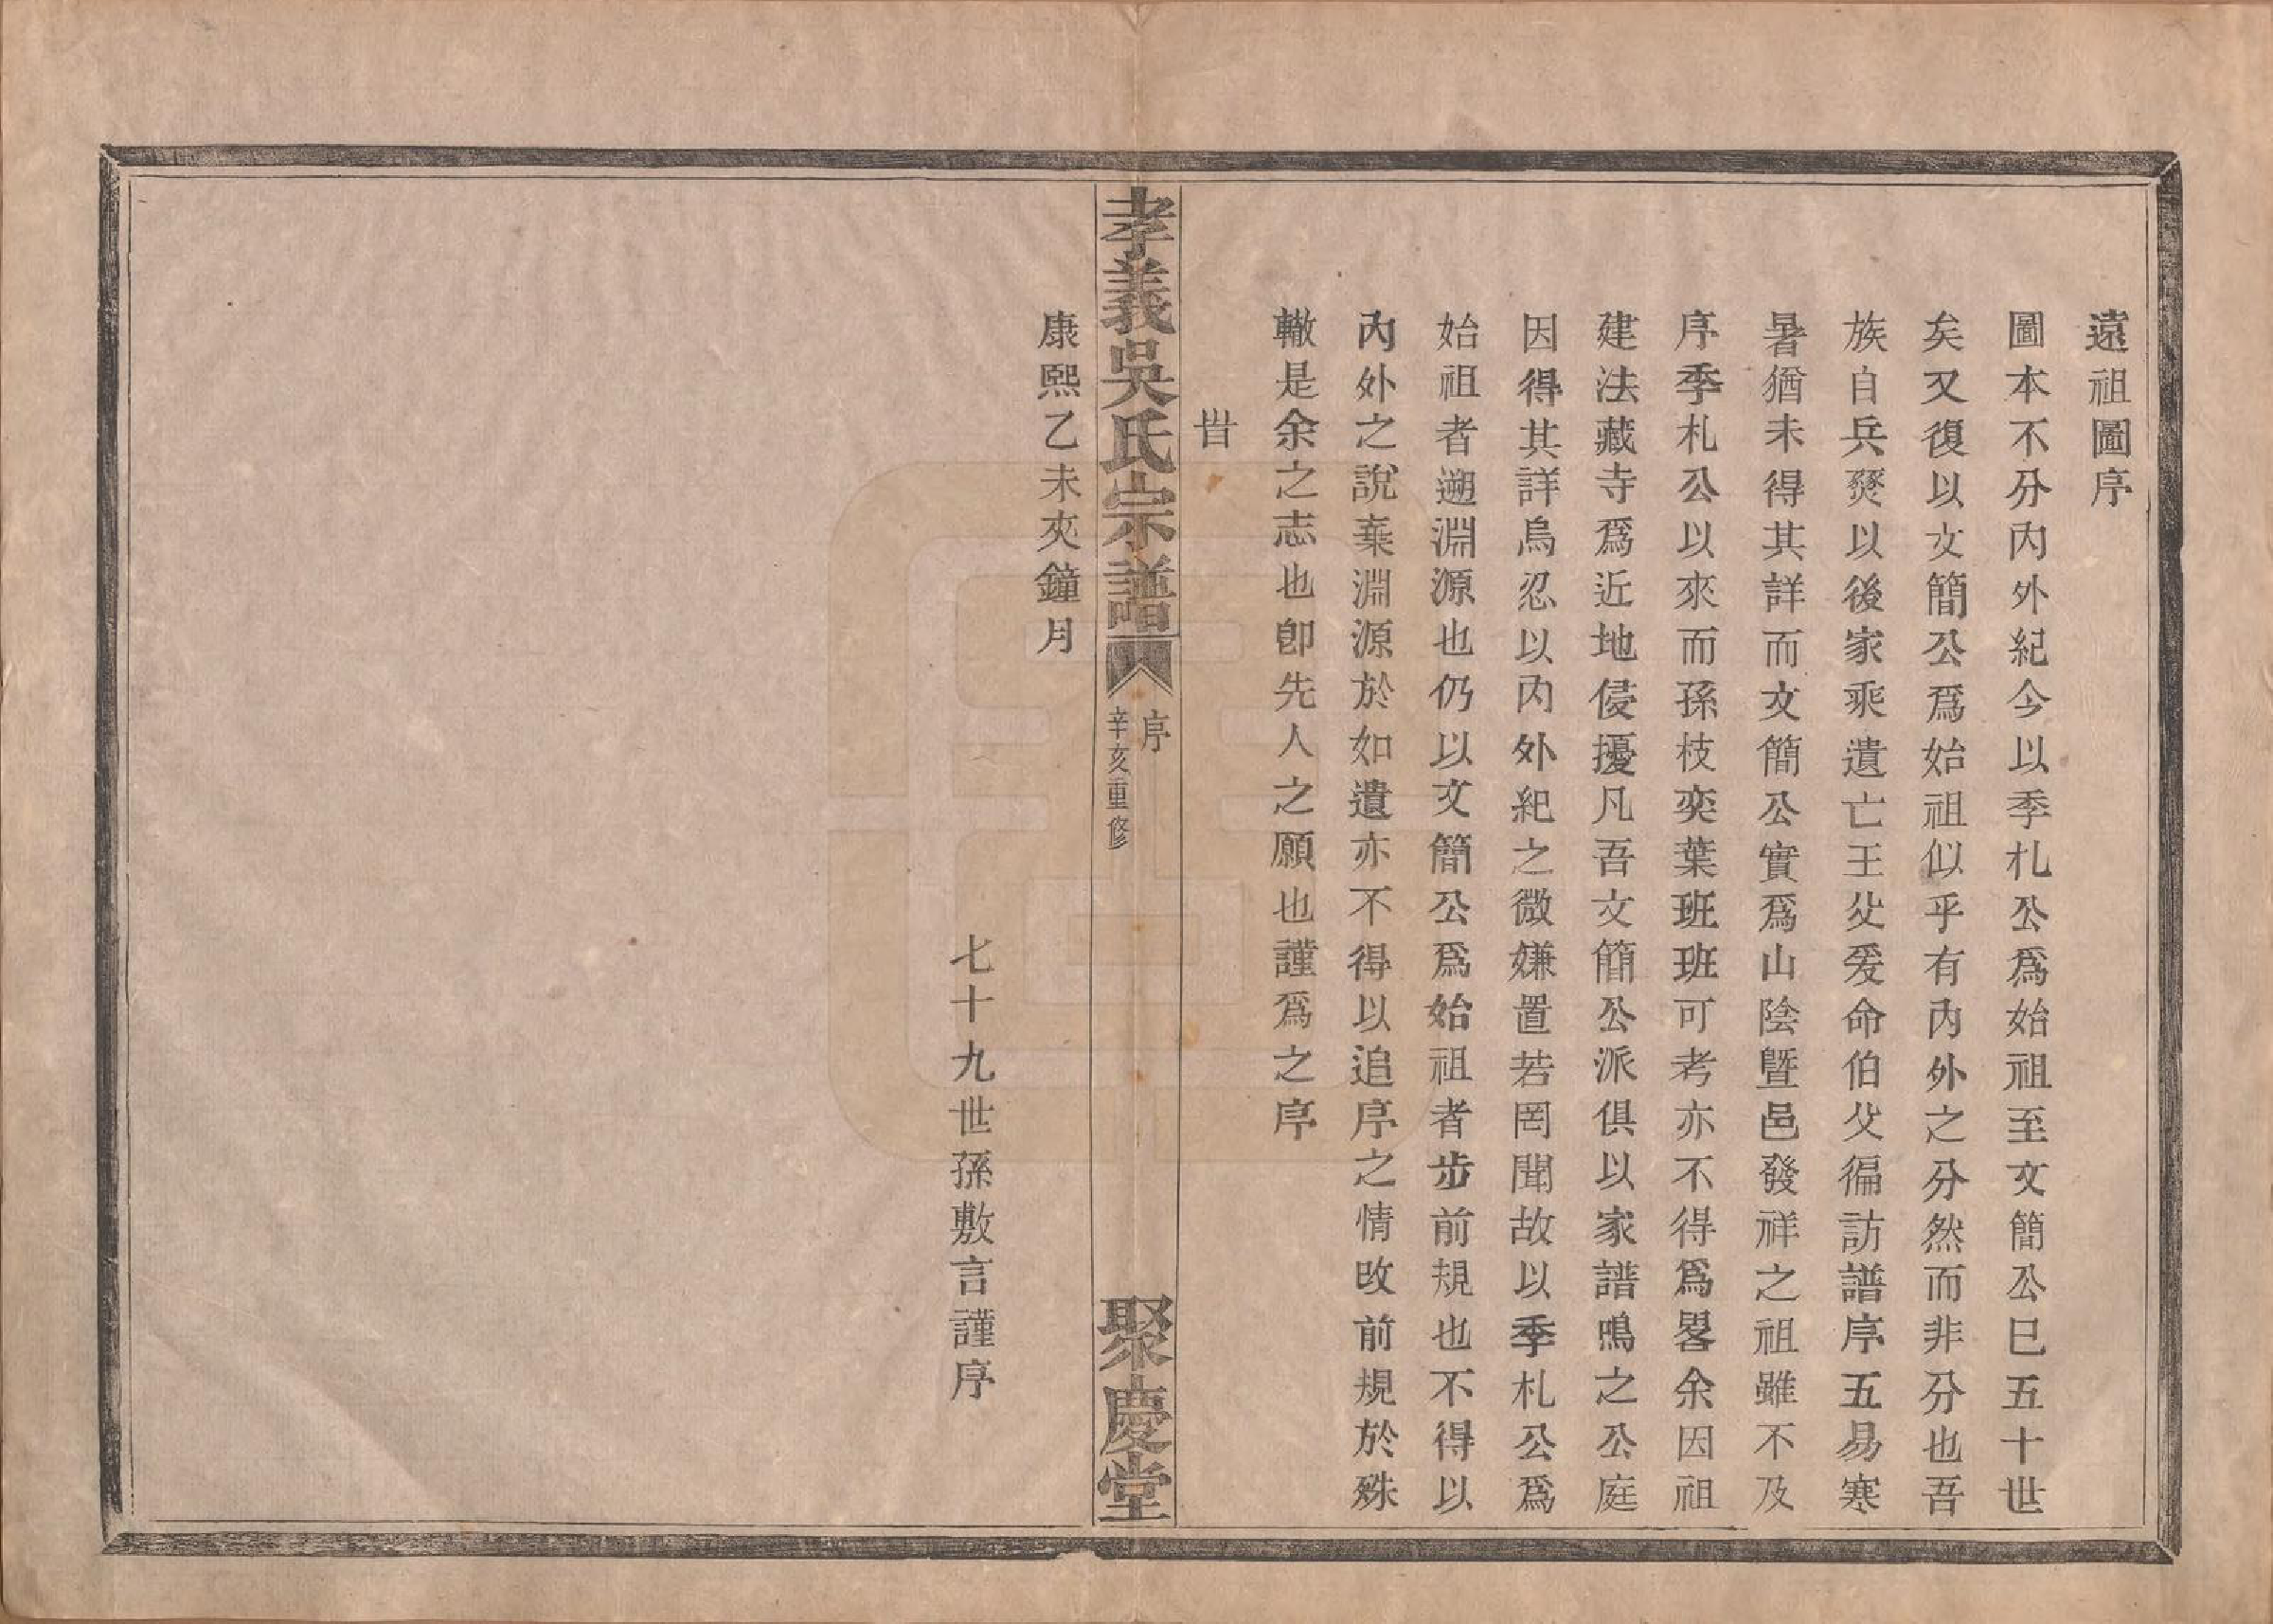 遠祖圖序
圖本不分內外紀今以季札公爲始祖至文簡公已五十世
矣又復以文簡公爲始祖似乎有內外之分然而非分也吾
族自兵燹以後家乘遺亡王父爰命伯父徧訪譜序五易寒
暑猶未得其詳而文簡公實爲山陰暨邑發祥之祖雖不及
序季札公以來而孫枝奕葉班班可考亦不得爲畧余因祖
建法藏寺爲近地侵擾凡吾文簡公派俱以家譜鳴之公庭
因得其詳烏忍以內外紀之微嫌置若罔聞故以季札公爲
始祖者遡淵源也仍以文簡公爲始祖者步前規也不得以
內外之說棄淵源於如遺亦不得以追序之情改前規於殊
轍是余之志也卽先人之願也謹爲之序
旹
孝義吳氏宗譜
序
辛亥重修
聚慶堂
康熙乙未夾鐘月
七十九世孫敷言謹序